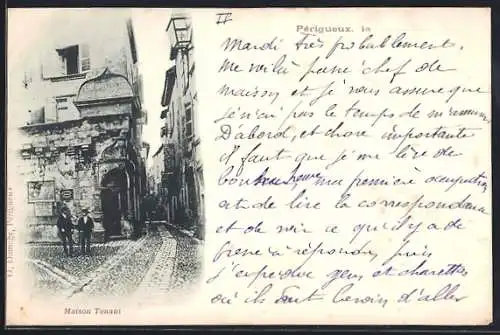 IV
Périgueux, le
Mardi très probablement.
Me voilà passé chef de
maison et je vous assure que
je n'ai pas le temps de m'amuser
D'abord, et chose importante
il faut que je me lève de
bonne heure, ma première occupation
est de lire la correspondance
et de voir ce qu'il y a de
pressé à répondre, puis
j'expédie gens et charrettes
où ils ont besoin d'aller
Maison Tenant